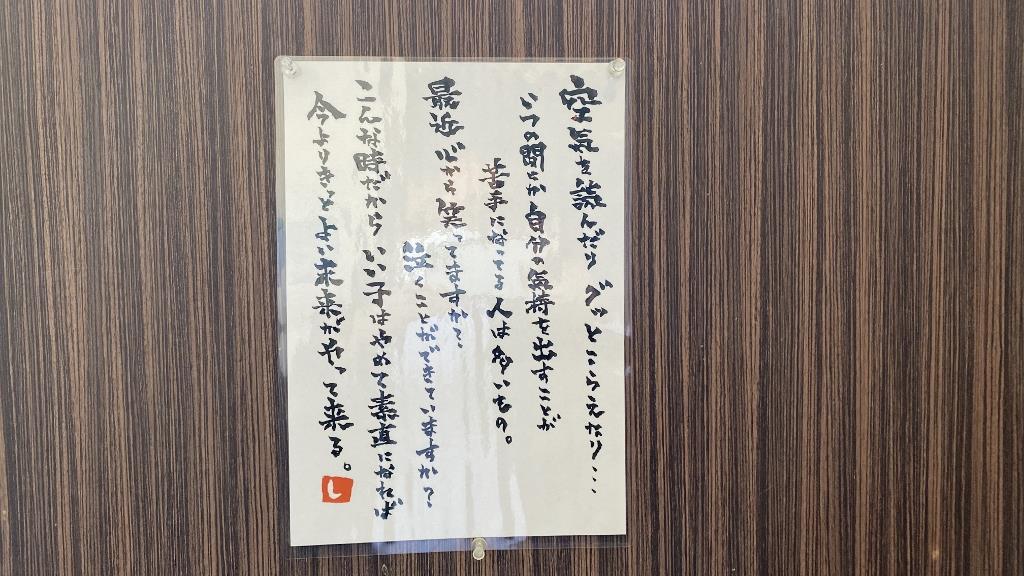 空気を読んだり グッとこらえたり…
いつの間にか自分の気持を出すことが
苦手になってる人は多いもの。
最近心から笑ってますか？
泣くことができていますか？
こんな時だから いい子はやめて素直になれば
今よりきっとよい未来がやって来る。
し